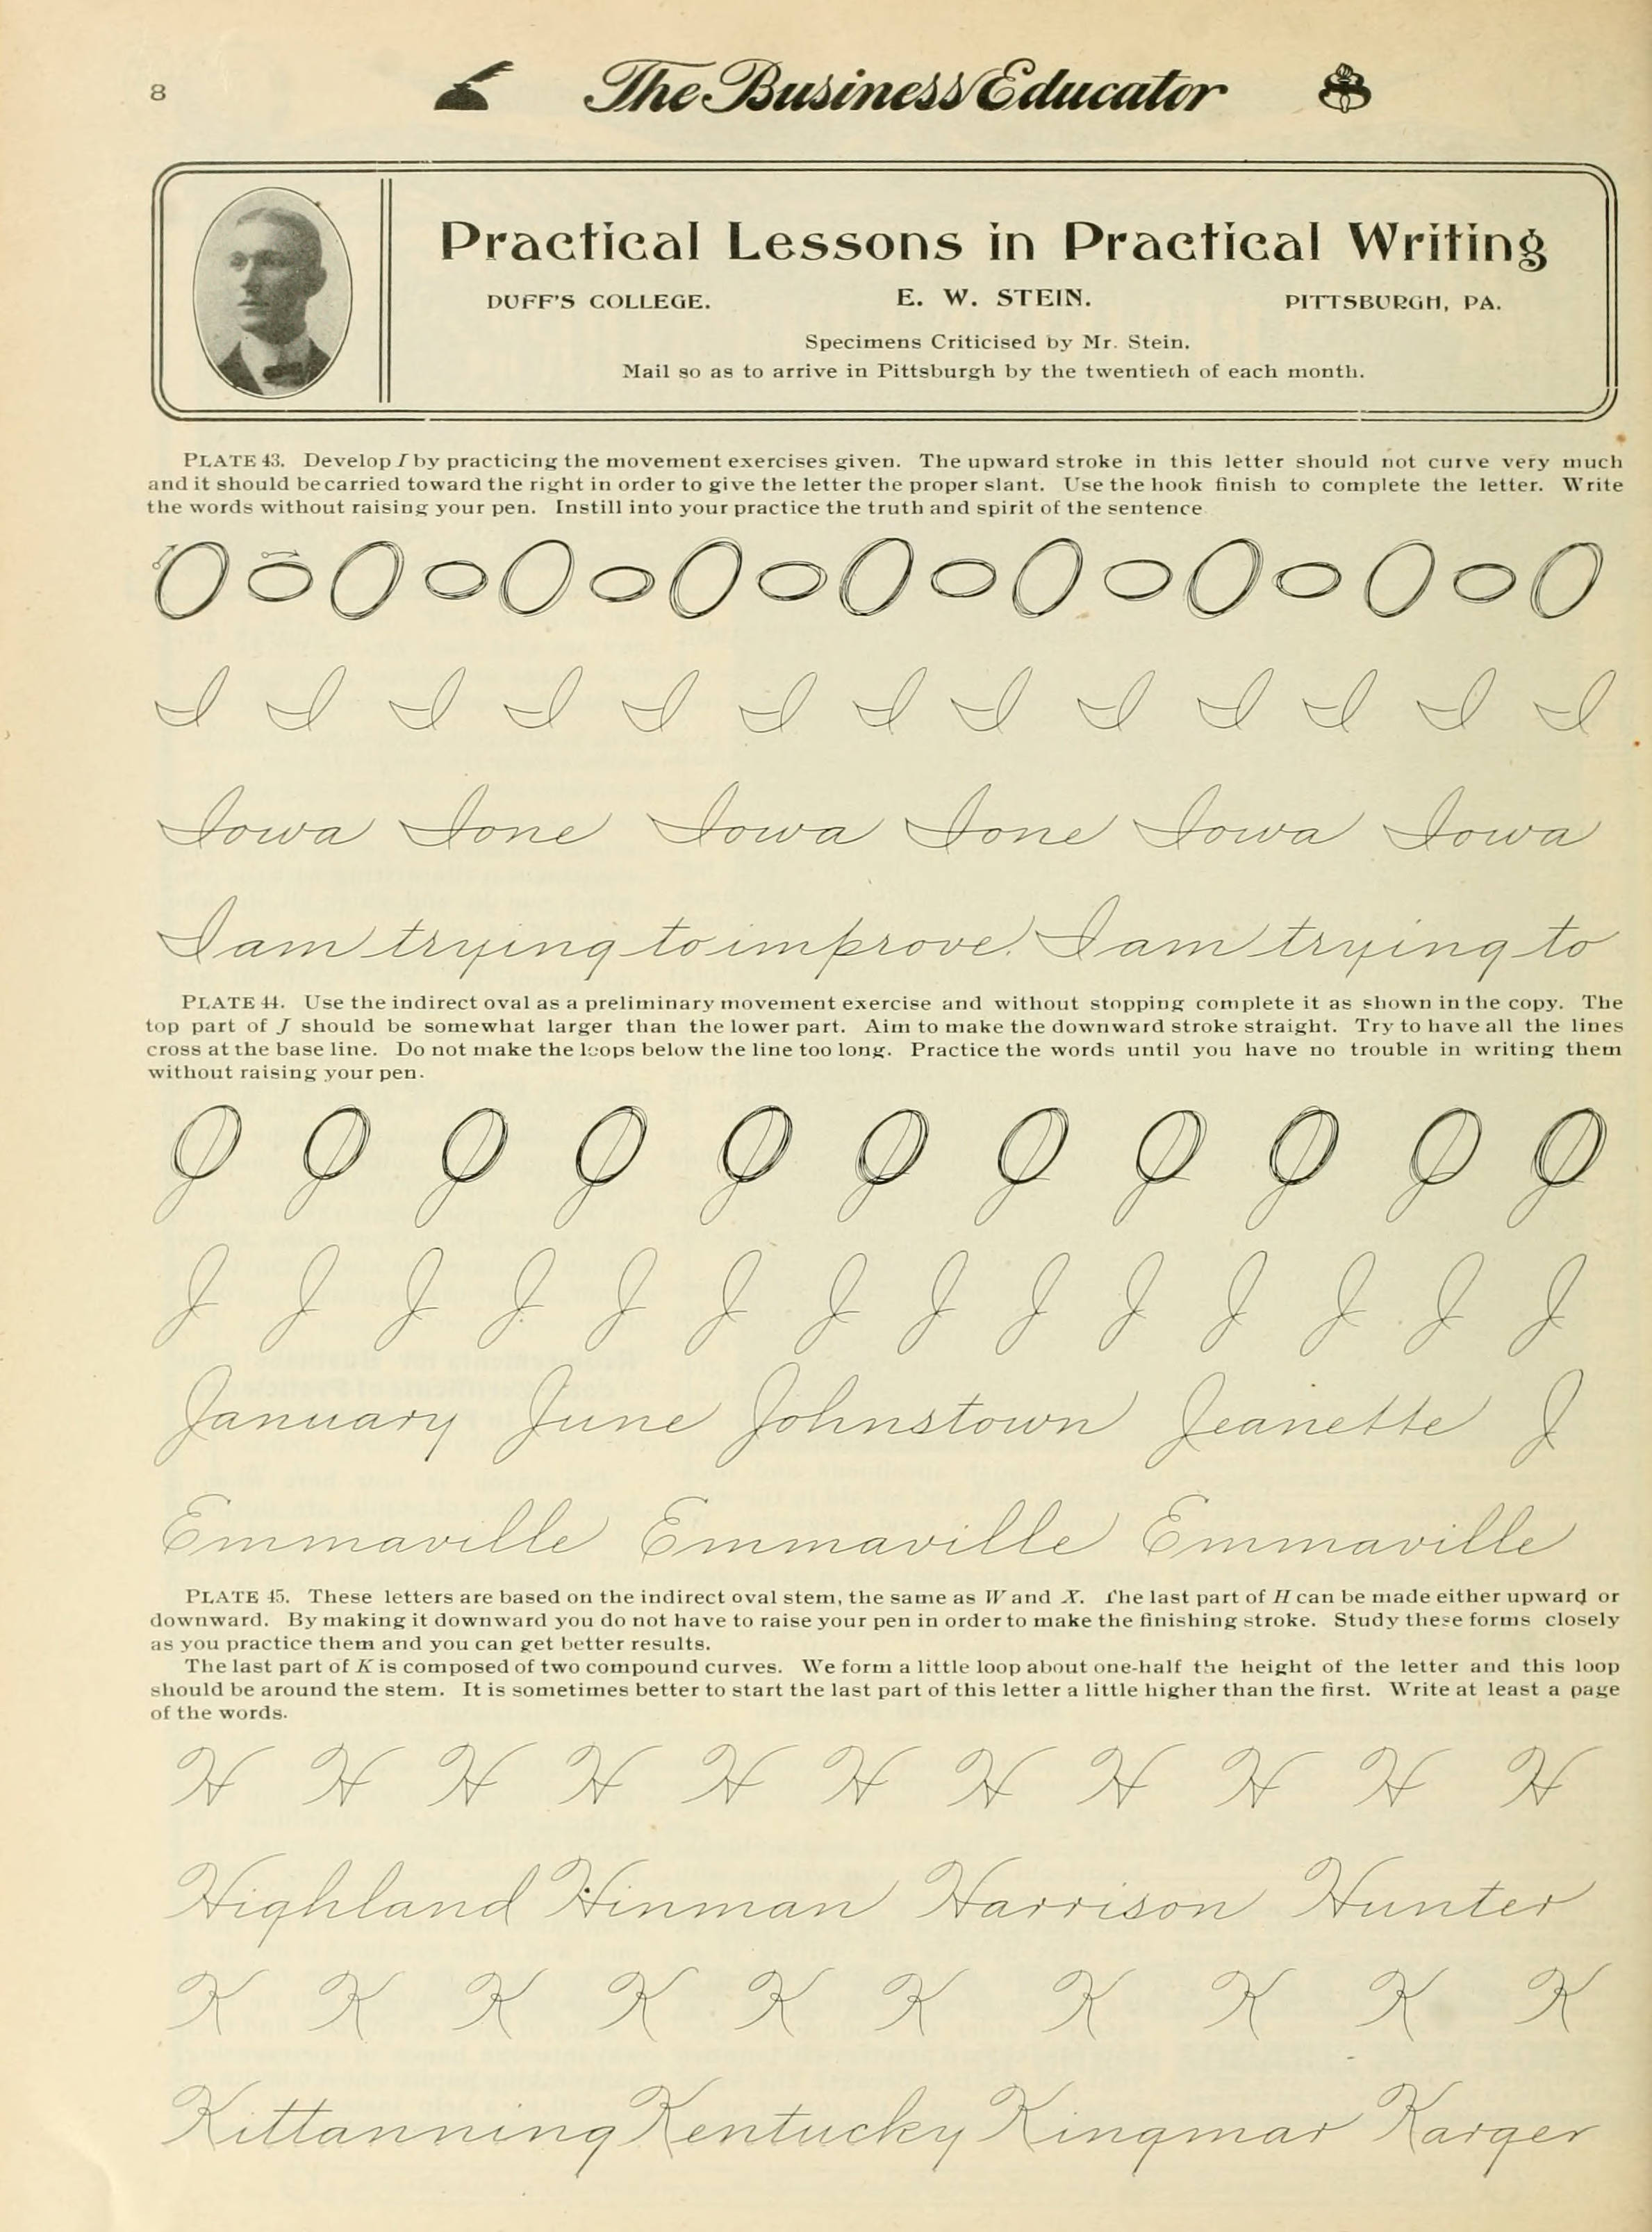 8
The Business Educator
Practical Lessons in Practical Writing
DUFF'S COLLEGE. E. W. STEIN. PITTSBURGH, PA.
Specimens Criticised by Mr. Stein.
Mail so as to arrive in Pittsburgh by the twentieth of each month.
PLATE 43. Develop I by practicing the movement exercises given. The upward stroke in this letter should not curve very much
and it should be carried toward the right in order to give the letter the proper slant. Use the hook finish to complete the letter. Write
the words without raising your pen. Instill into your practice the truth and spirit of the sentence
O O O O O O O O O O O O O O O O O
I I I I I I I I I I I I I
Iowa Ione Iowa Ione Iowa Iowa
I am trying to improve. I am trying to
PLATE 44. Use the indirect oval as a preliminary movement exercise and without stopping complete it as shown in the copy. The
top part of J should be somewhat larger than the lower part. Aim to make the downward stroke straight. Try to have all the lines
cross at the base line. Do not make the loops below the line too long. Practice the words until you have no trouble in writing them
without raising your pen.
J J J J J J J J J J J
J J J J J J J J J J J J J J
January June Johnstown Jeanette J
Emmaville Emmaville Emmaville
PLATE 45. These letters are based on the indirect oval stem, the same as W and X. The last part of H can be made either upward or
downward. By making it downward you do not have to raise your pen in order to make the finishing stroke. Study these forms closely
as you practice them and you can get better results.
The last part of K is composed of two compound curves. We form a little loop about one-half the height of the letter and this loop
should be around the stem. It is sometimes better to start the last part of this letter a little higher than the first. Write at least a page
of the words.
H H H H H H H H H H H
Highland Hinman Harrison Hunter
K K K K K K K K K K
Kittanning Kentucky Kingmar Karger